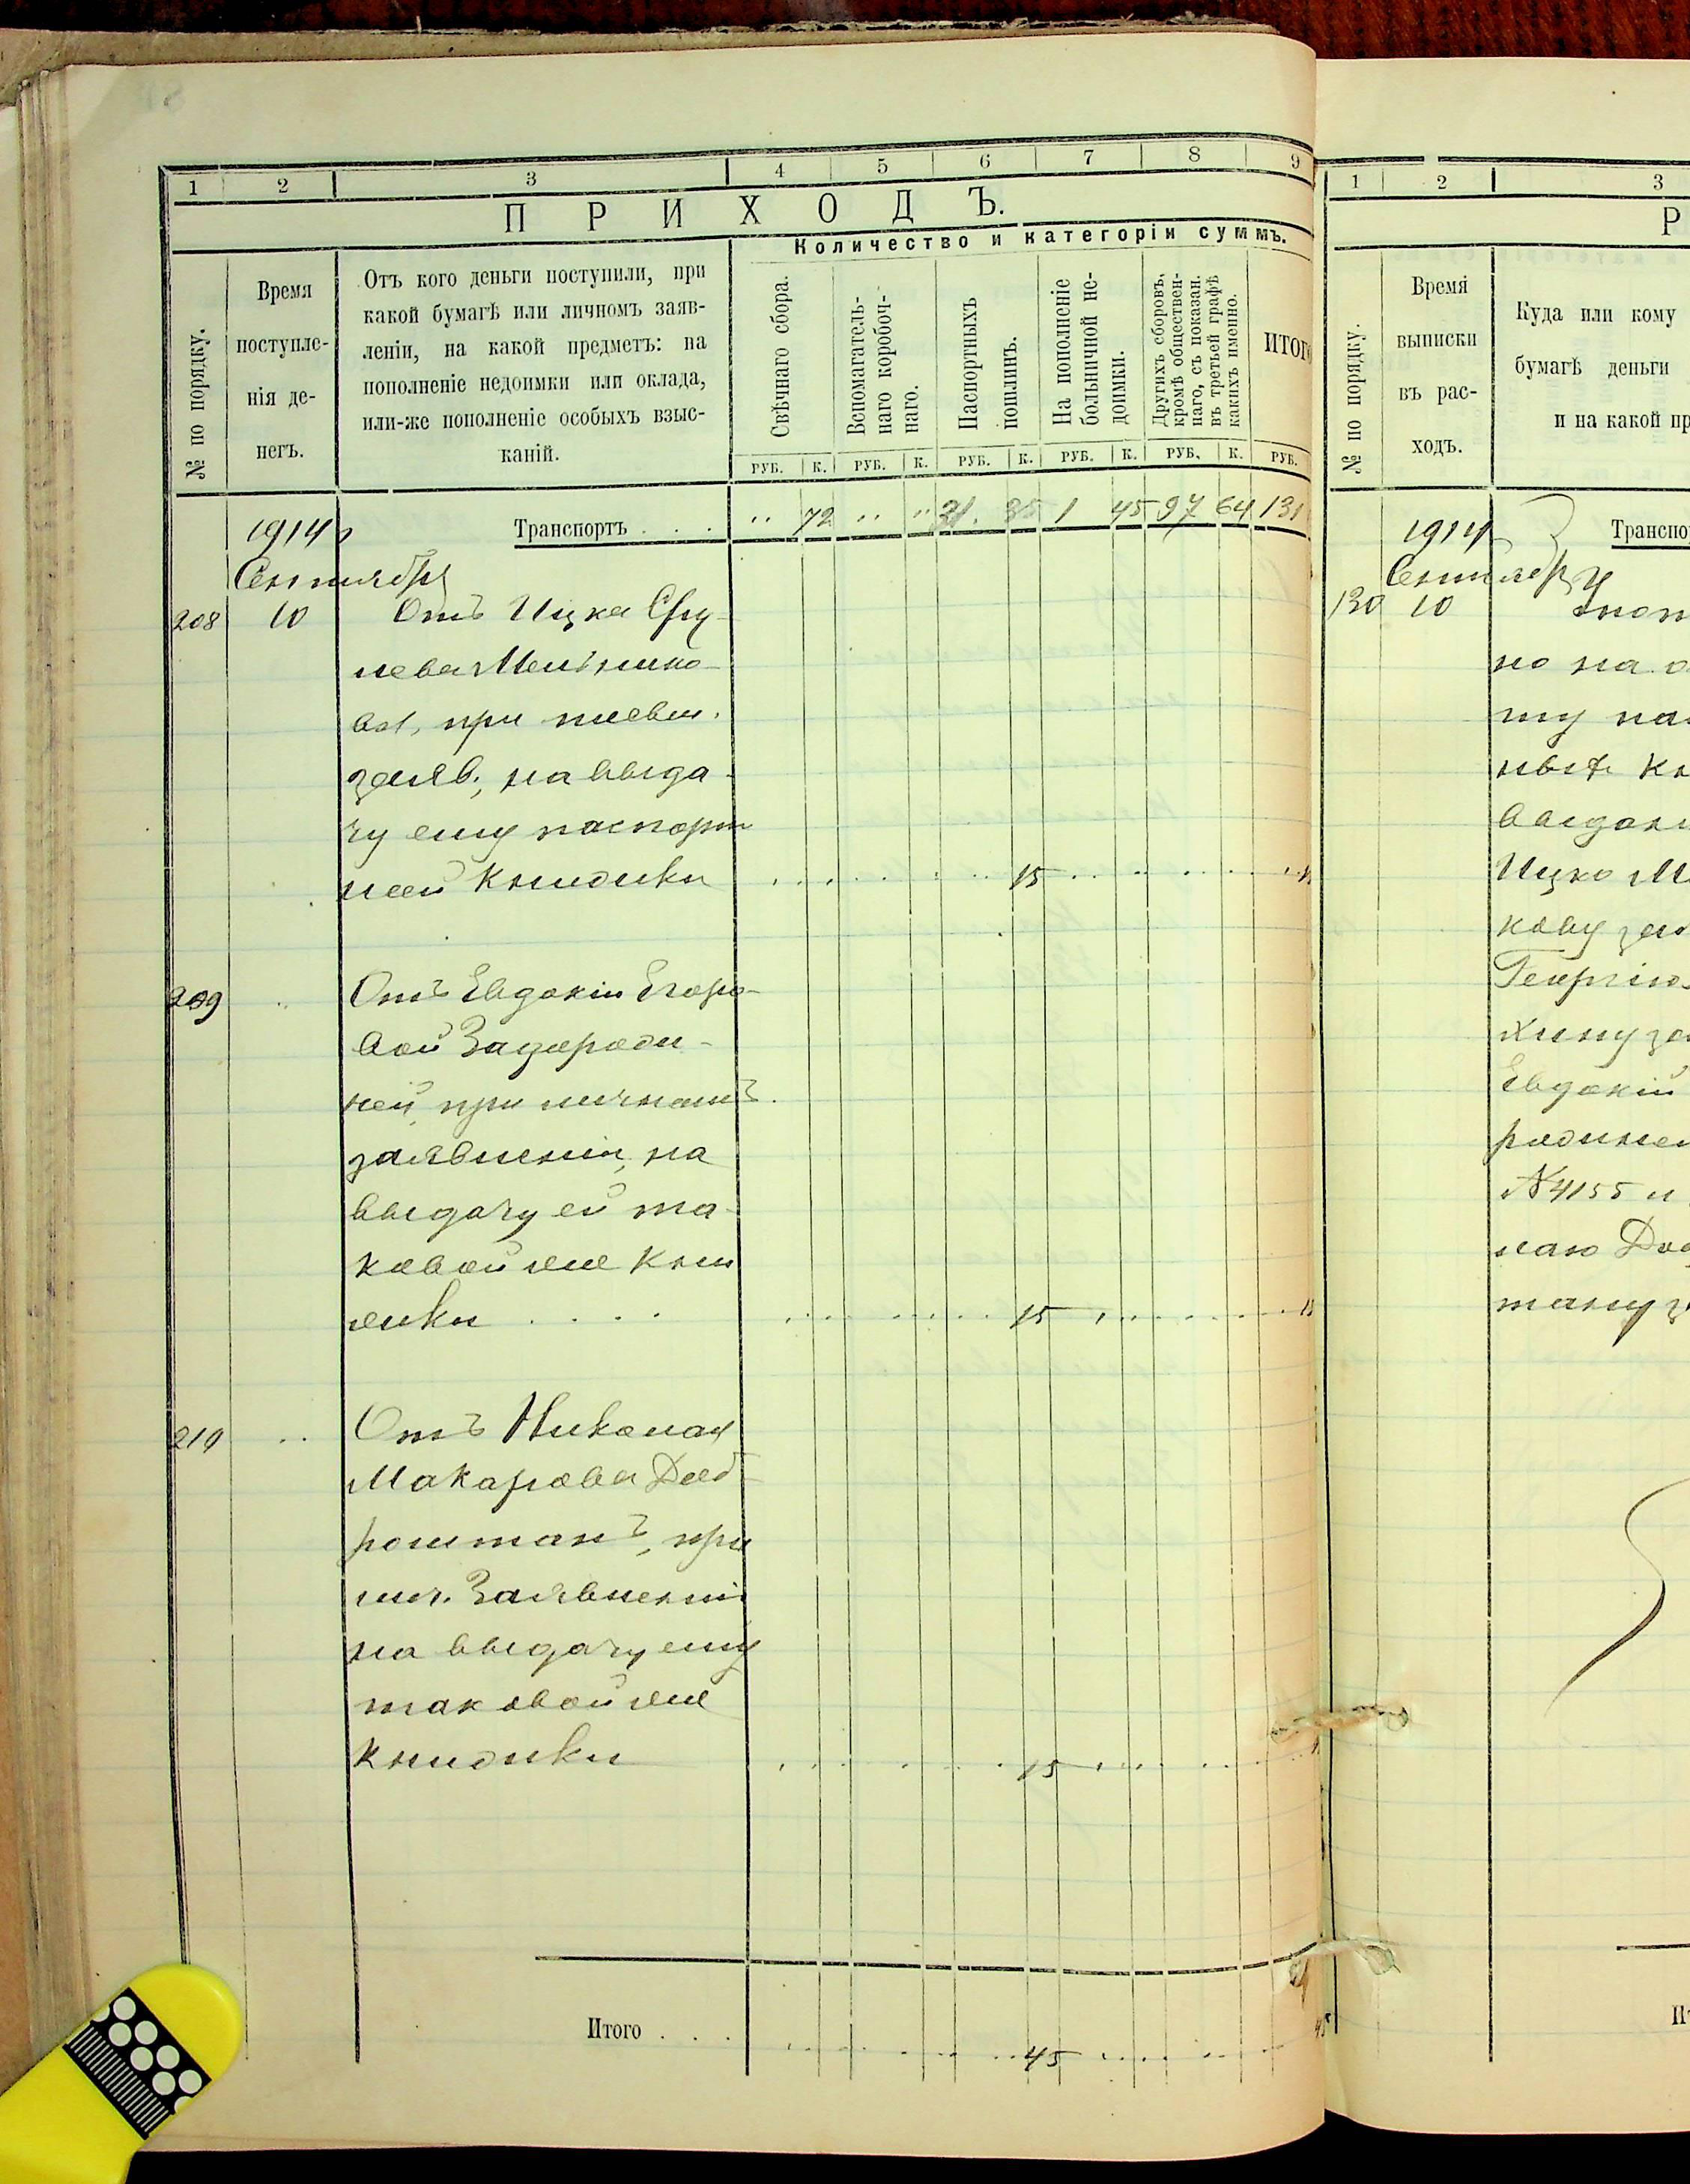 1 2 3 4 5 6 7 8 9
ПРИХОДЪ.
Количество и категоріи суммъ.
№ по порядку.
Время
поступле-
нія де-
негъ.
Отъ кого деньги поступили, при
какой бумагѣ или личномъ заяв-
леніи, на какой предметъ: на
пополненіе недоимки или оклада,
или-же пополненіе особыхъ взыс-
каній.
Свѣчнаго сбора.
Вспомагатель-
наго коробоч-
наго.
Паспортныхъ
пошлинъ.
На пополненіе
больничной не-
доимки.
Другихъ сборовъ,
кромѣ обществен-
наго, съ показан.
въ третьей графѣ
какихъ именно.
ИТОГО
РУБ. К. РУБ. К. РУБ. К. РУБ. К. РУБ. К. РУБ.
1914 Транспортъ . . . " 72 " " 31. 35 1 45 97 64 131
Сентября
208 10 Отъ Ицка
Мельнико-
ва, при
заяв., на выда-
чу ему паспорт
ной книжки 15
209 " Отъ Евдокіи Егоро-
вой Загород-
ней, при личномъ
заявленіи, на
выдачу ей та-
ковой же кни
жки . . . . 15
210 " Отъ Николая
Макарова Доб-
роштанъ, при
лич. заявленіи
на выдачу ему
таковой же
книжки 15
Итого . . . 45 45
1 2 3
Р
№ по порядку.
Время
выписки
въ рас-
ходъ.
Куда или кому
бумагѣ деньги
и на какой пр
1914 Транспо
Сентября
130 10
но на о
ту
Ицко М
кову за
Георгію
Евдокіи
№ 4155 и
лаю Доб
тану з
Ит